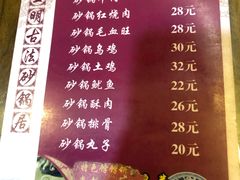 明古法砂锅居
砂锅红烧肉 28元
砂锅毛血旺 28元
砂锅乌鸡 30元
砂锅土鸡 32元
砂锅鱿鱼 22元
砂锅酥肉 26元
砂锅排骨 28元
砂锅丸子 20元
特色